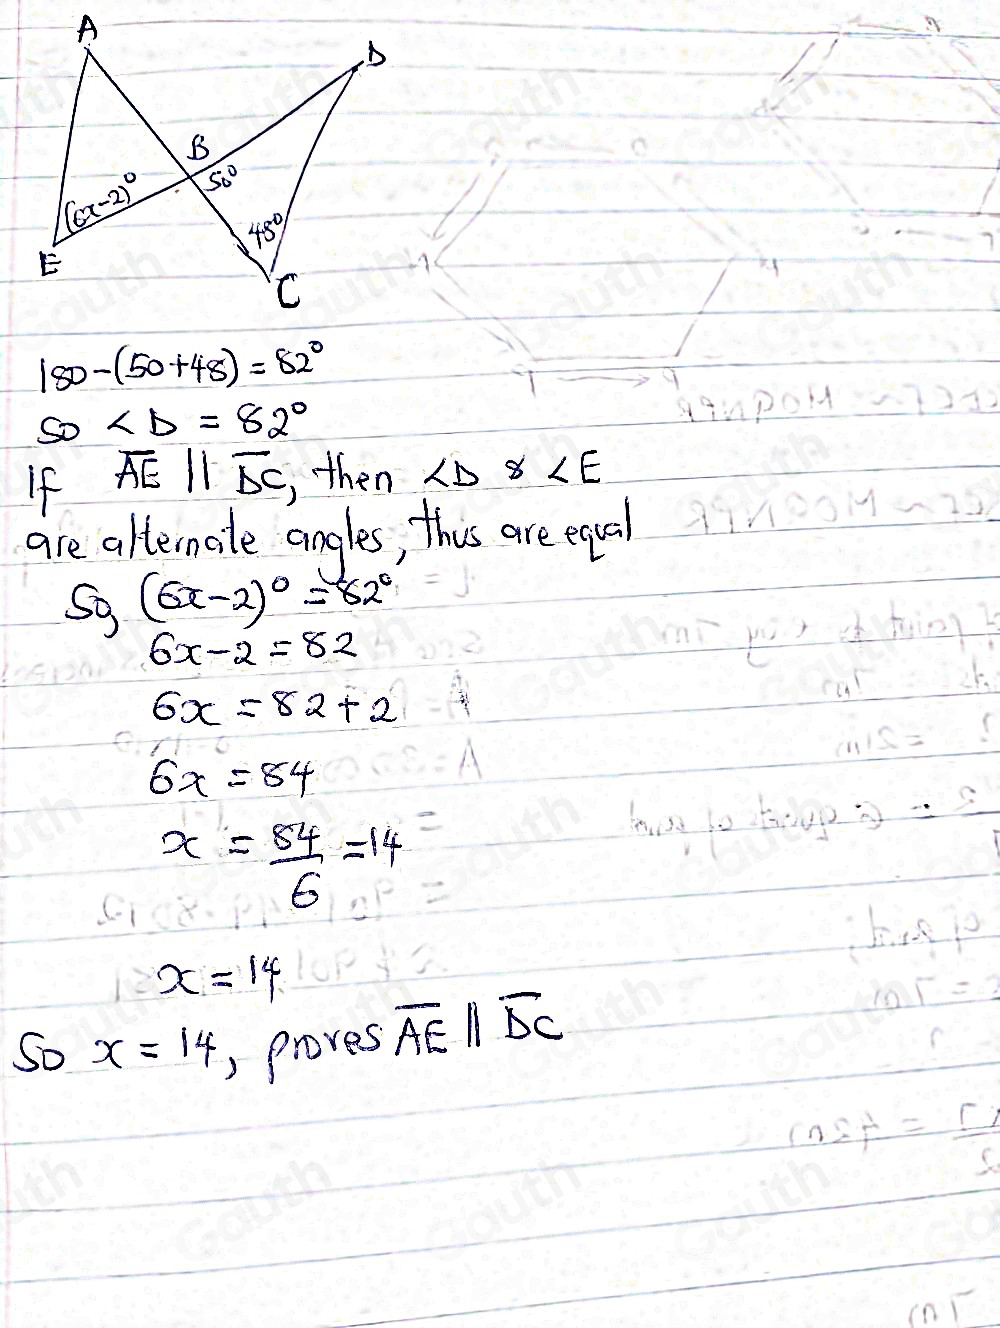 A
D
B
50°
(6x-2)°
48°
E
C
180-(50+48) = 82°
So <D = 82°
If AE || DC, then <D & <E
are alternate angles, thus are equal
So, (6x-2)° = 82°
6x-2 = 82
6x = 82+2
6x = 84
x = 84/6 = 14
x = 14
So x = 14, proves AE || DC
Gauth